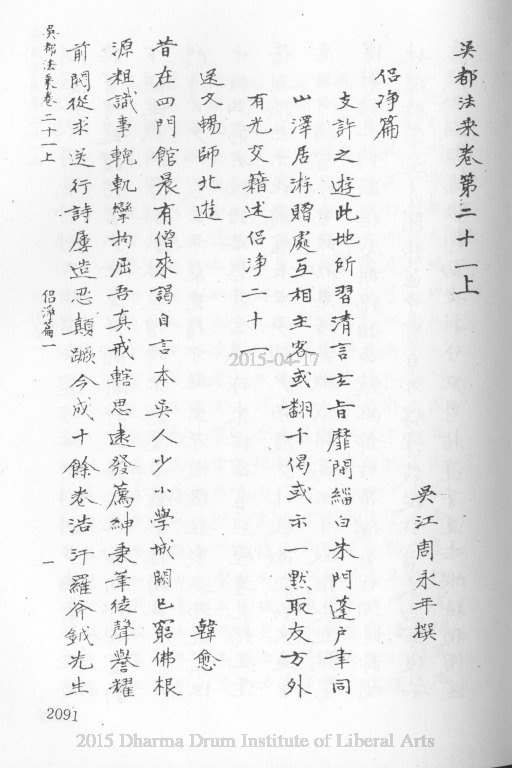 吳都法乘卷第二十一上
吳江周永年撰
侶淨篇
支許之遊此地所習清言玄旨靡間緇白朱門蓬戶幸同
山澤居游贈處互相主客或翻千偈或示一默取友方外
有光交籍述侶淨二十一
送文暢師北遊
韓愈
昔在四門館晨有僧來謁自言本吳人少小學城闕已窮佛根
源粗識事輗軏攣拘屈吾真戒轄思遠發薦紳秉筆徒聲譽耀
前閥從求送行詩屢造忍顛蹶今成十餘卷浩汗羅斧鉞先生
吳都法乘卷二十一上
侶淨篇一
一
2091
2015-04-17
2015 Dharma Drum Institute of Liberal Arts